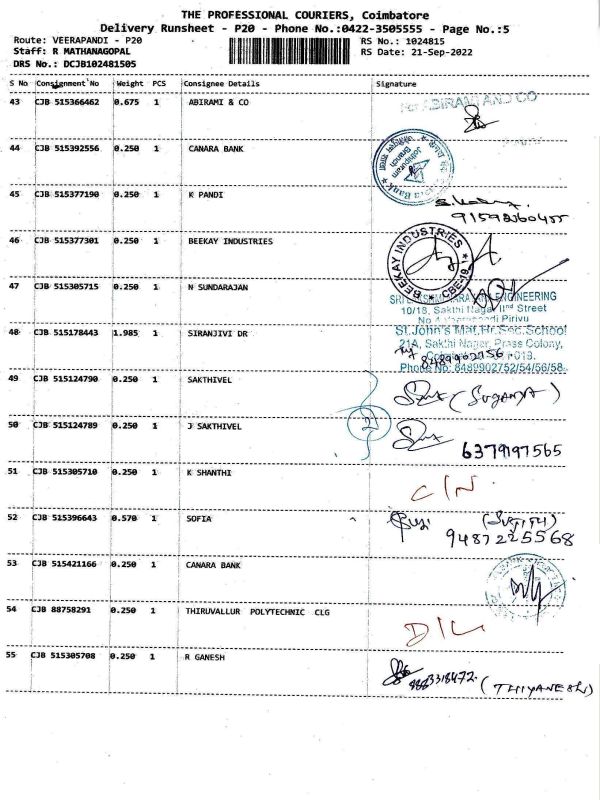 THE PROFESSIONAL COURIERS, Coimbatore
Delivery Runsheet - P20 - Phone No.:0422-3505555 - Page No.:5
Route: VEERAPANDI - P20 RS No.: 1024815
Staff: R MATHANAGOPAL RS Date: 21-Sep-2022
DRS No.: DCJB102481505
S No Consignment No Weight PCS Consignee Details Signature
43 CJB 515366462 0.675 1 ABIRAMI & CO For ABIRAMI AND CO
44 CJB 515392556 0.250 1 CANARA BANK
45 CJB 515377190 0.250 1 K PANDI
46 CJB 515377301 0.250 1 BEEKAY INDUSTRIES BEEKAY INDUSTRIES CBE-19
47 CJB 515305715 0.250 1 N SUNDARAJAN
ENGINEERING
10/18, Sakthi Nagar IInd Street
Pirivu
48 CJB 515178443 1.985 1 SIRANJIVI DR St.John's Mat.Hr.Sec.School
21A, Sakthi Nagar, Press Colony,
8489902756
Phone No: 8489902752/54/56/58
49 CJB 515124790 0.250 1 SAKTHIVEL
2
50 CJB 515124789 0.250 1 J SAKTHIVEL
6379197565
51 CJB 515305710 0.250 1 K SHANTHI C/N
52 CJB 515396643 0.570 1 SOFIA
9487225568
53 CJB 515421166 0.250 1 CANARA BANK
54 CJB 88758291 0.250 1 THIRUVALLUR POLYTECHNIC CLG D/L
55 CJB 515305708 0.250 1 R GANESH